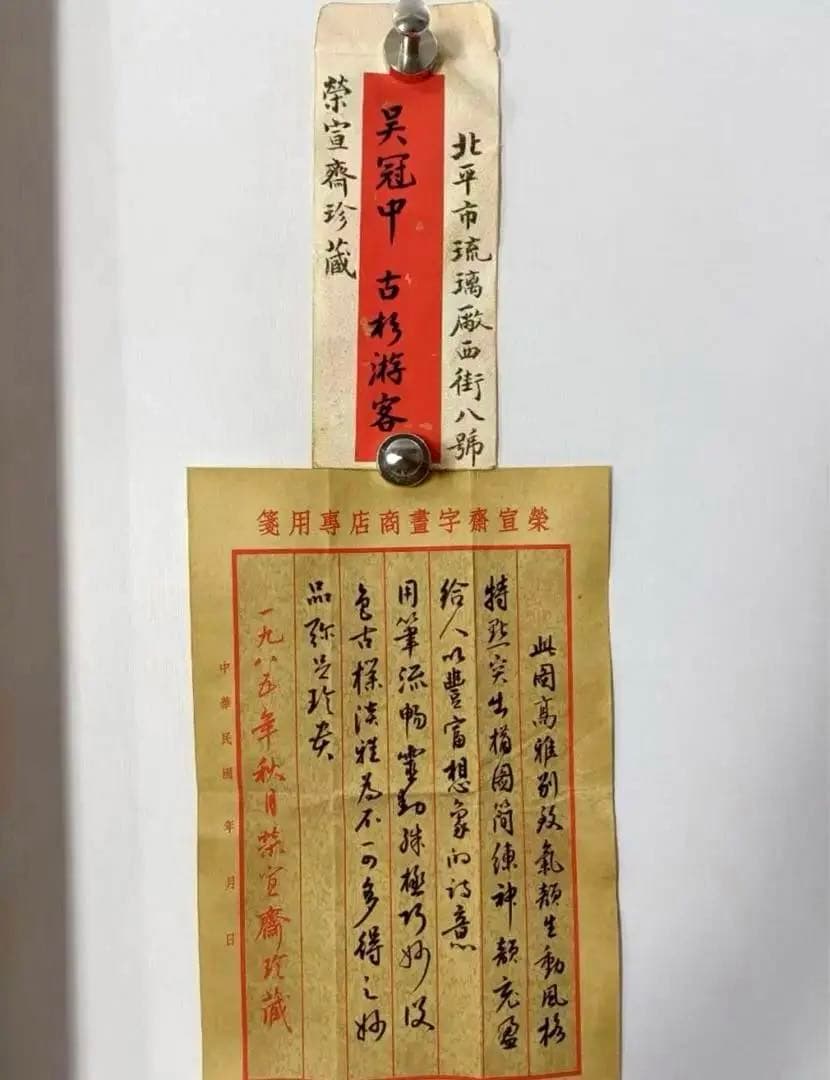 北平市琉璃厰西街八號
吴冠中 古杉游客
榮宣齋珍藏
榮宣齋字畫商店專用箋
此图高雅别致氣韻生動風格
特點突出構图简練神韻充盈
给人以豐富想象的诗意
用筆流畅靈動殊極巧妙设
色古樸淡雅為不可多得之妙
品弥足珍贵
一九八五年秋月榮宣齋珍藏
中華民國 年 月 日